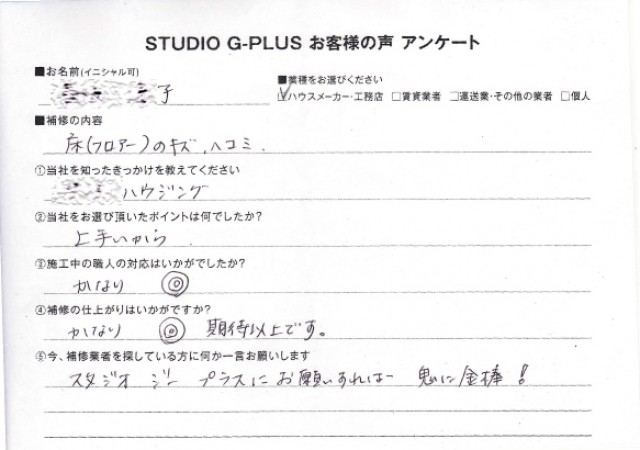 STUDIO G-PLUS お客様の声 アンケート
■お名前(イニシャル可)
子
■業種をお選びください
☑ハウスメーカー・工務店 □賃貸業者 □運送業・その他の業者 □個人
■補修の内容
床(フロアー)のキズ、ハコミ.
①当社を知ったきっかけを教えてください
ハウジング
②当社をお選び頂いたポイントは何でしたか?
上手いから
③施工中の職人の対応はいかがでしたか?
かなり ◎
④補修の仕上がりはいかがですか?
かなり ◎ 期待以上です。
⑤今、補修業者を探している方に何か一言お願いします
スタジオ ジー プラスに お願いすれば 鬼に金棒!